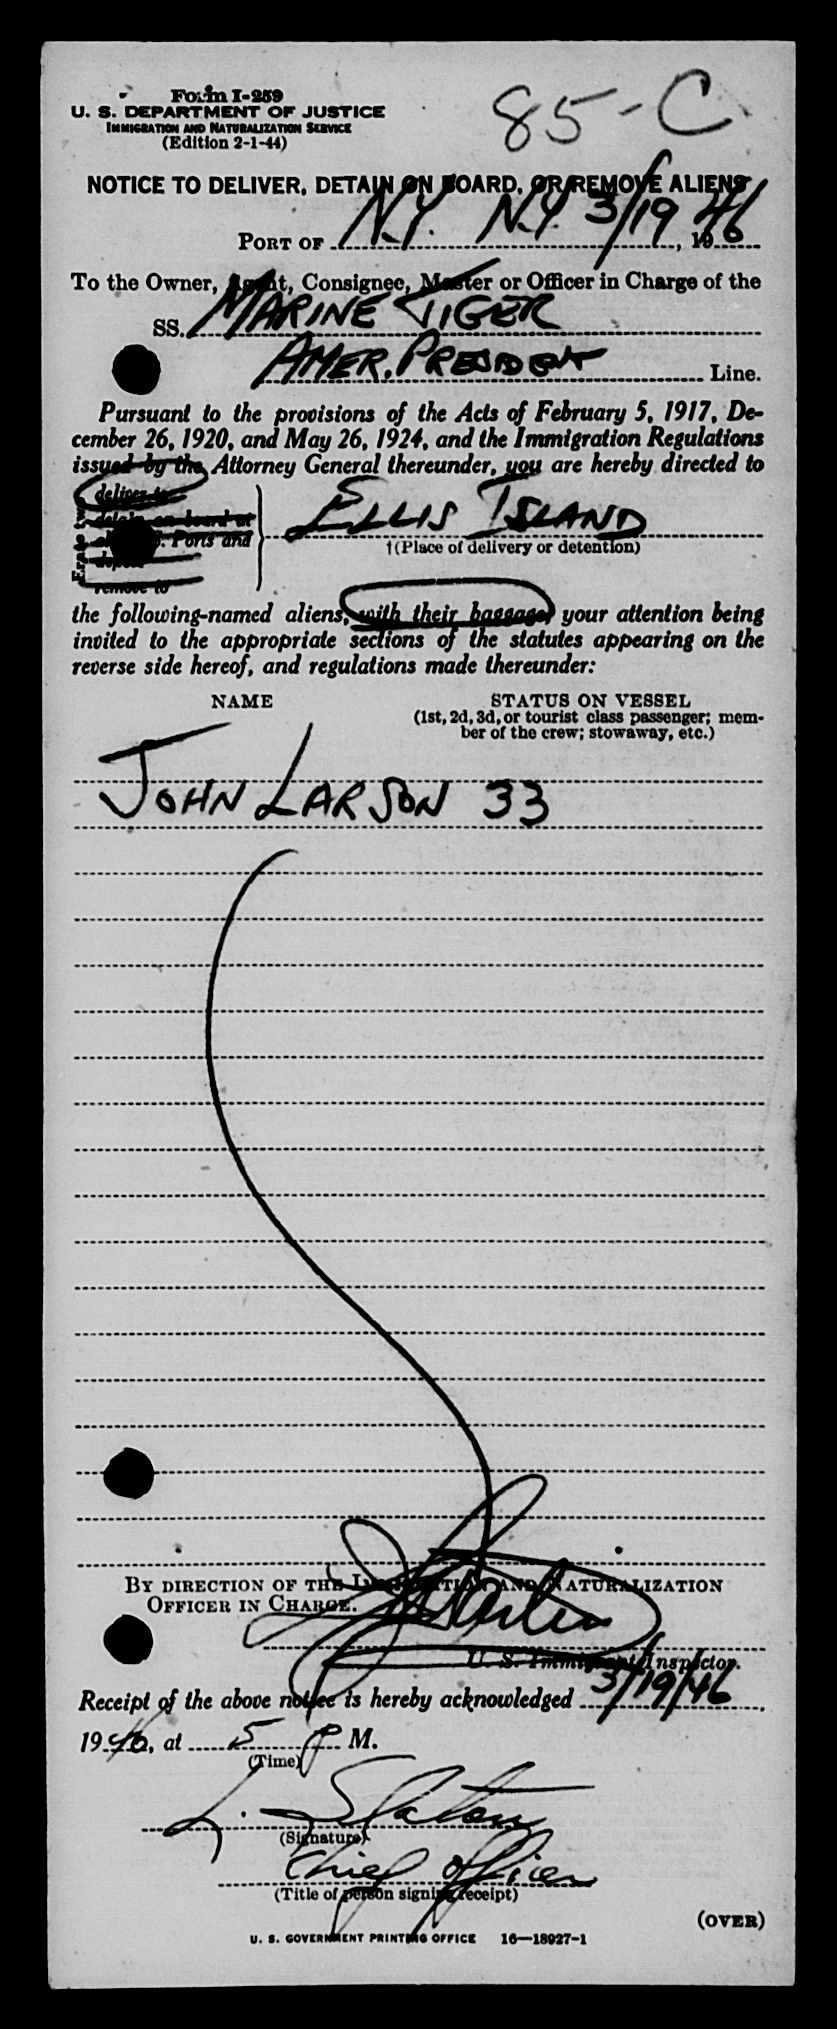 Form I-259
85-C
U. S. DEPARTMENT OF JUSTICE
IMMIGRATION AND NATURALIZATION SERVICE
(Edition 2-1-44)
NOTICE TO DELIVER, DETAIN ON BOARD, OR REMOVE ALIENS
PORT OF N.Y. N.Y. 3/19, 1946
To the Owner, Agent, Consignee, Master or Officer in Charge of the
SS. MARINE TIGER
AMER. PRESIDENT Line.
Pursuant to the provisions of the Acts of February 5, 1917, De-
cember 26, 1920, and May 26, 1924, and the Immigration Regulations
issued by the Attorney General thereunder, you are hereby directed to
deliver to
detain on board at
Ports and
remove to
ELLIS ISLAND
†(Place of delivery or detention)
the following-named aliens, with their baggage, your attention being
invited to the appropriate sections of the statutes appearing on the
reverse side hereof, and regulations made thereunder:
NAME STATUS ON VESSEL
(1st, 2d, 3d, or tourist class passenger; mem-
ber of the crew; stowaway, etc.)
JOHN LARSON 33
BY DIRECTION OF THE IMMIGRATION AND NATURALIZATION
OFFICER IN CHARGE.
U. S. Immigrant Inspector.
Receipt of the above notice is hereby acknowledged 3/19/46,
1946, at 5 P M.
(Time)
L. Slaton
(Signature)
Chief Officer
(Title of person signing receipt)
(OVER)
U. S. GOVERNMENT PRINTING OFFICE 16—18927-1